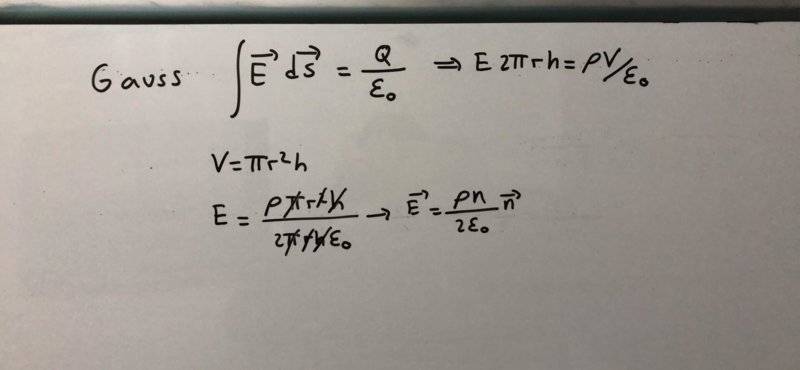 Gauss ∫ E⃗ ds⃗ = Q/ε₀ ⇒ E 2πrh = ρV/ε₀
V=πr²h
E = ρπr²h/2πrhε₀ → E⃗ = ρn/2ε₀ n⃗